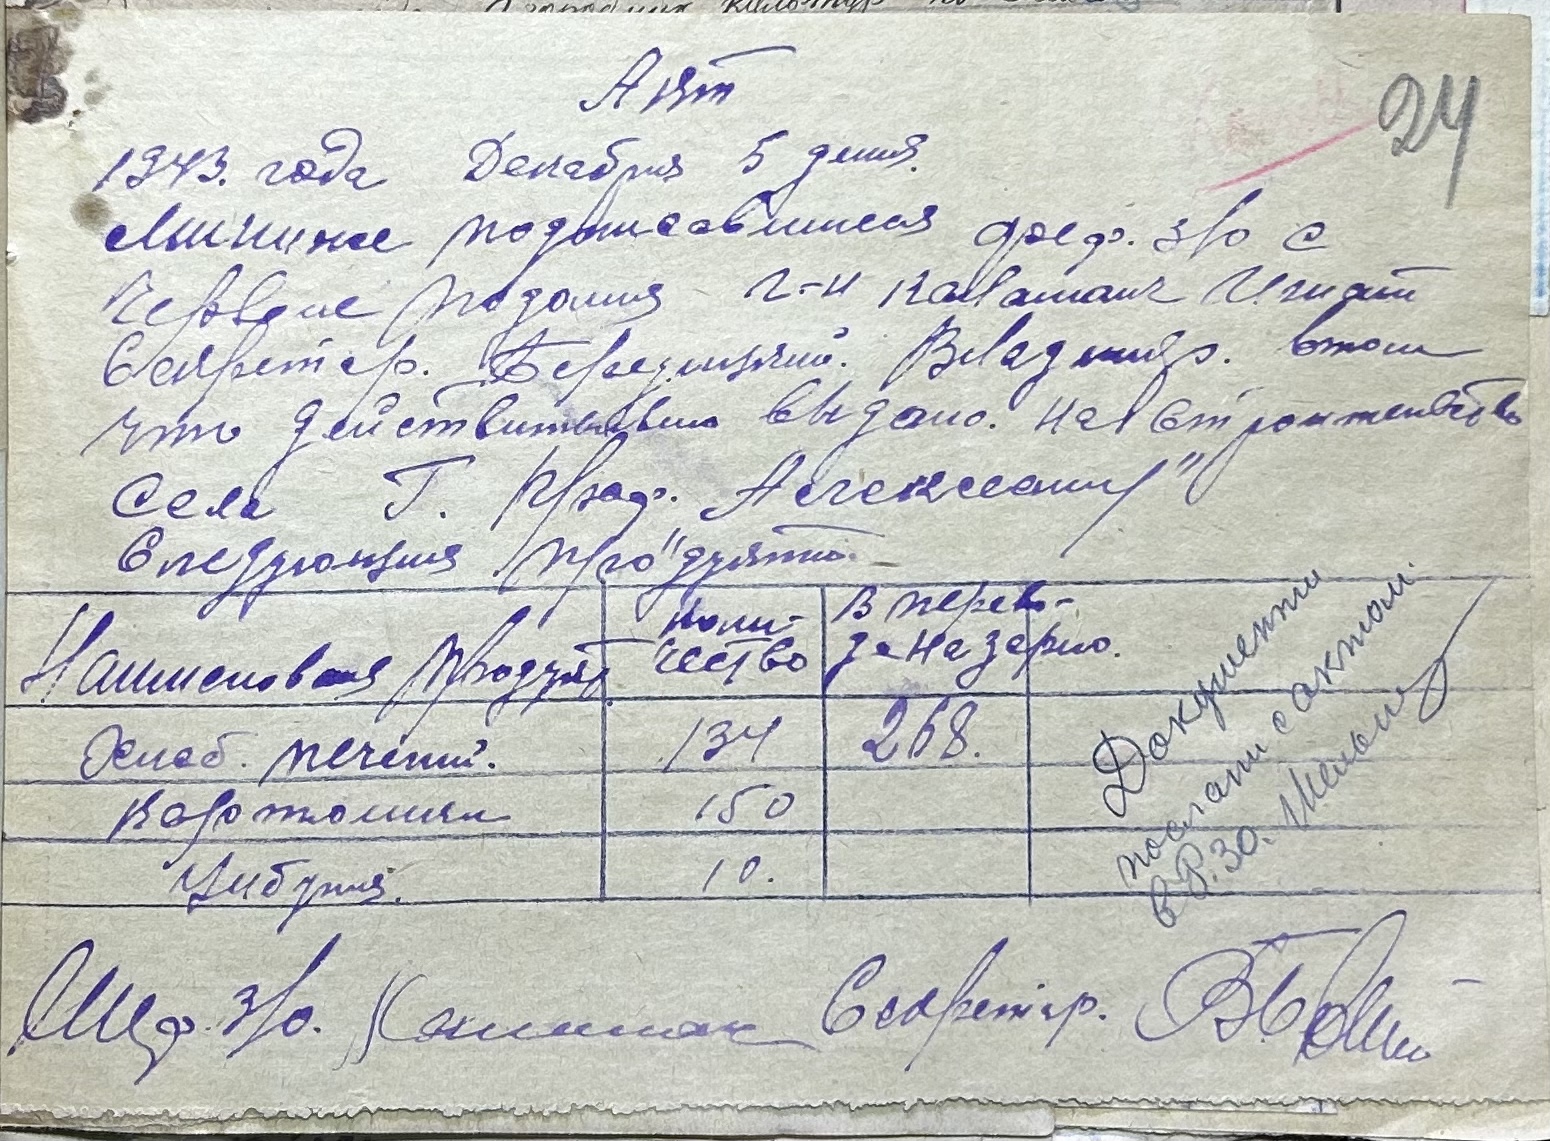 24
Акт
1943. года Декабря 5 дния.
Мы ниже подписавшиеся Шеф. з/о с
Червоне Подолия г-н Каламан Игнат
Секретар. Березицкий. Владимир. втом
что действительно выдано. на строительство
Села Г. Граф. Александр"
Следующия про"дукти.
Наименования продукт
Коли-
чество
В перево-
де на зерно.
Хлеб. печений. 134 268.
Картошки 150
Цибуля. 10.
Документи
послати с актом.
в Р.З.О.
Шеф. з/о. Секретар.